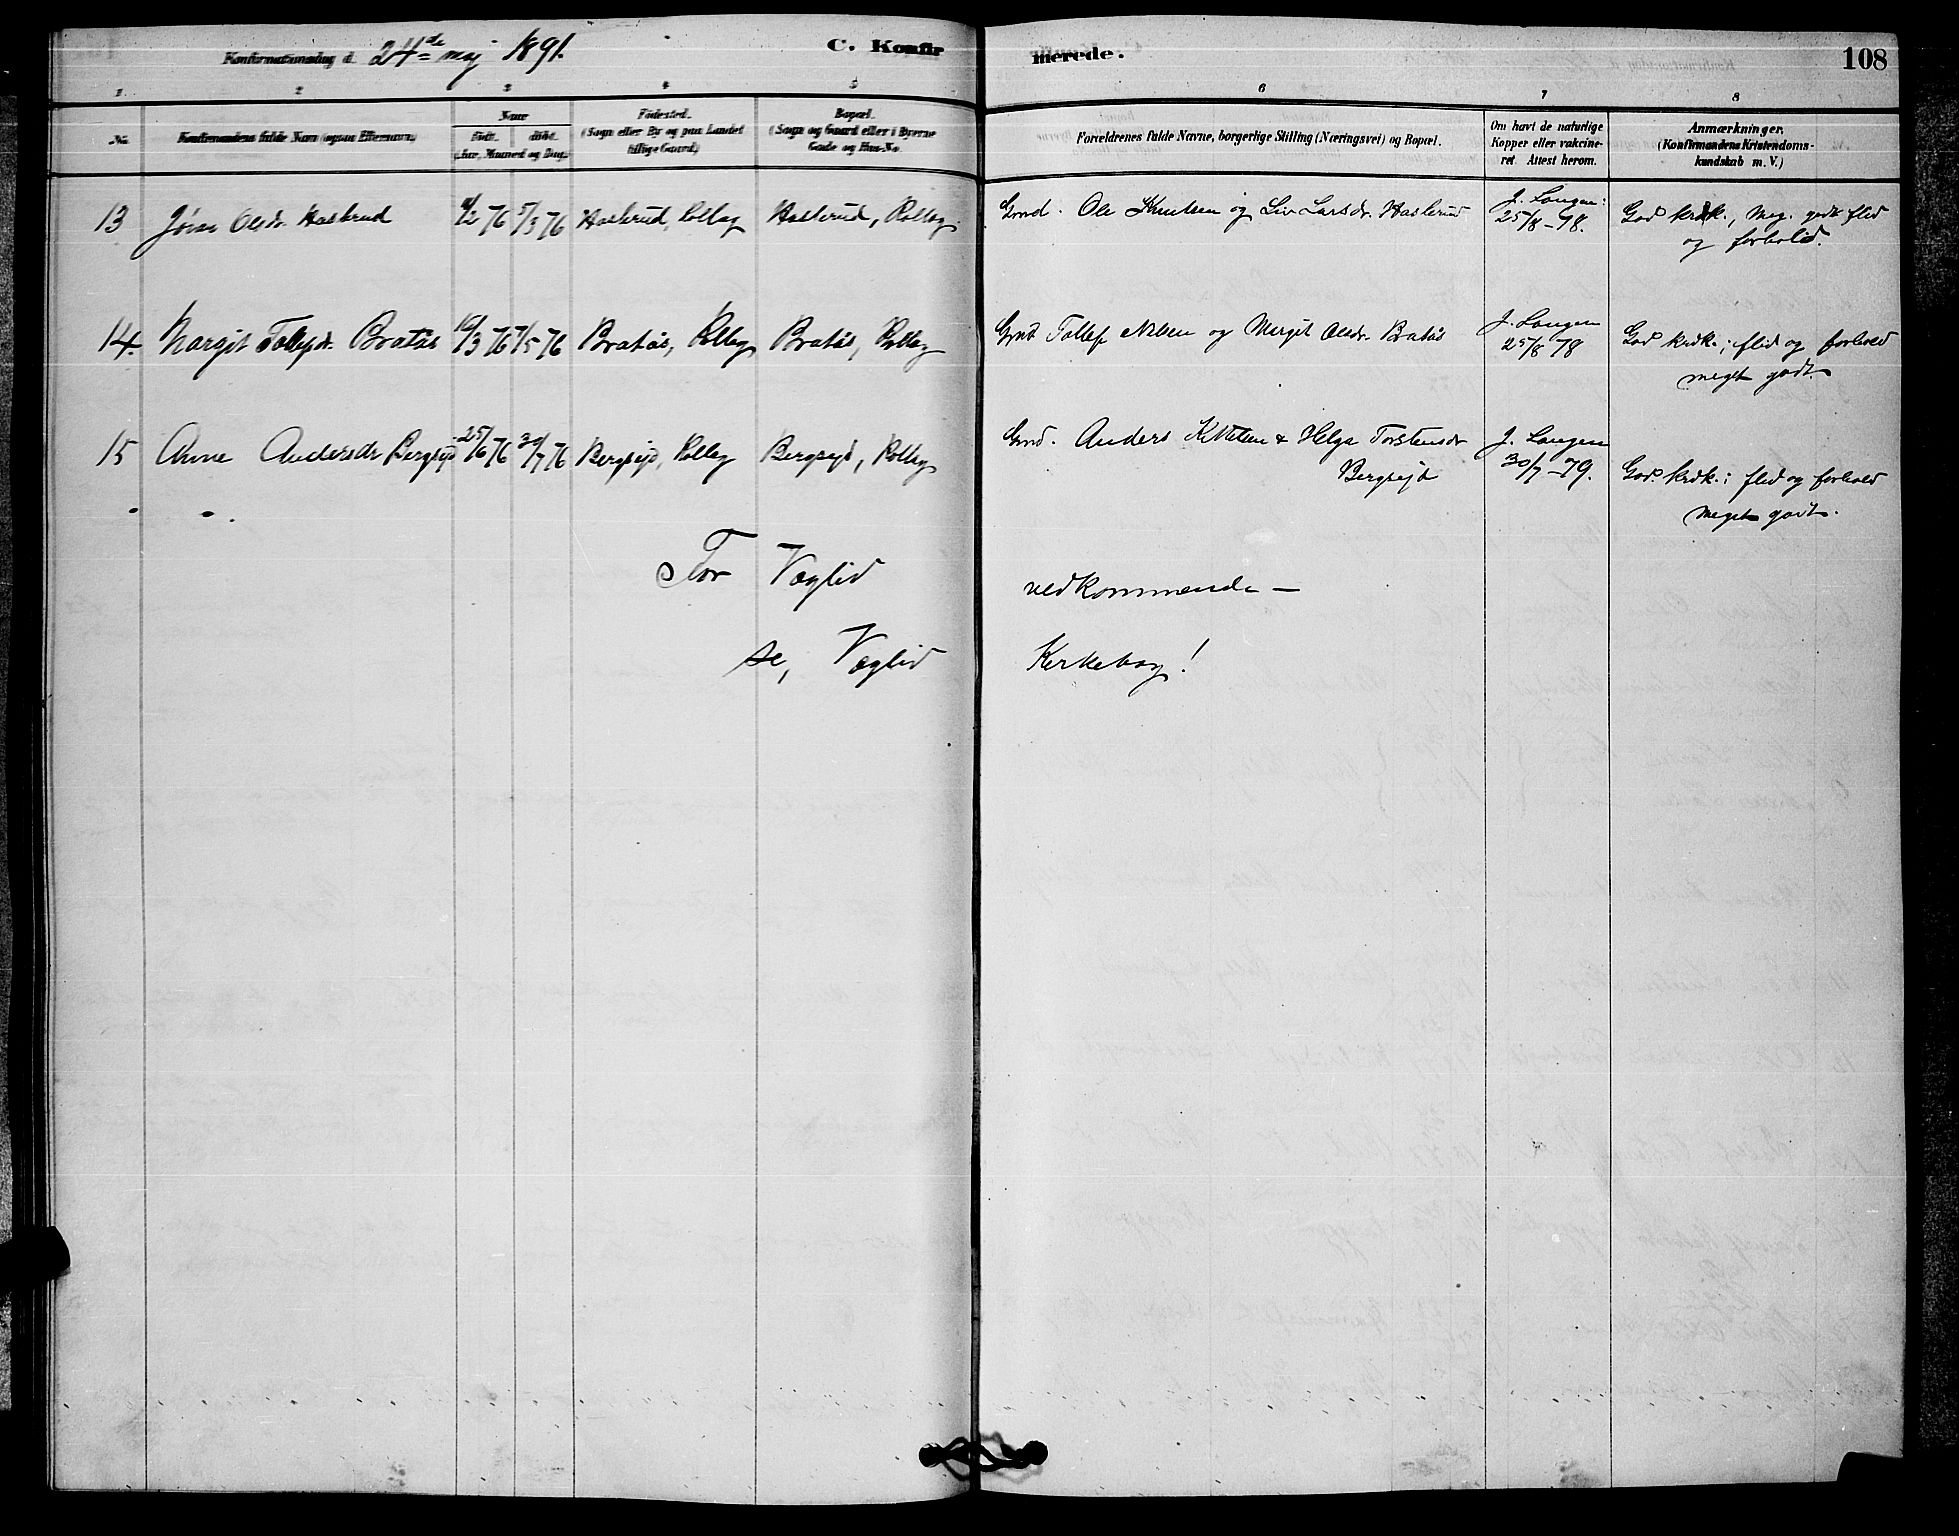 Konfirmationsdag d. 24de maj 1891.
C. Konfir
merede.
108
1 2 3 4 5 6 7 8
No. Konfirmandens fulde Navn (ogsaa Efternavn). Naar Født. døbt. (Aar, Maaned og Dag). Fødested. (Sogn eller By og paa Landet tillige Gaard). Bopæl. (Sogn og Gaard eller i Byerne Gade og Hus-No.
Forældrenes fulde Navne, borgerlige Stilling (Næringsvei) og Bopæl. Om havt de naturlige Kopper eller vakcineret. Attest herom. Anmærkninger. (Konfirmandens Kristendomskundskab m. V.)
13 Olsdr. Hasterud /2 76 5/3 76 Hasterud, Rollag Hasterud, Rollag. Ole Knutsen og Liv Larsdr. Haslerud J. Langen: 25/8-78. God krdk., Meg. godt flid
og forhold.
14. Margit Tollefsdr. Bratås /3 76 7/5 76 Bratås, Rollag Bratås, Rollag Tollef Nilsen og Margit Olsdr. Bratås J. Langen 25/8 78 God krdk.; flid og forhold
meget godt.
15 Anne Andersdr Bergsejd 25/6 76 30/7 76 Bergsejd, Rollag Bergsejd, Rollag Anders Kittelsen & Helga Torstensdr J. Langen 30/7-79. God krdk.; flid og forhold
Bergsejd
Meget godt.
For Væglid vedkommende —
se, Væglid Kirkebog!